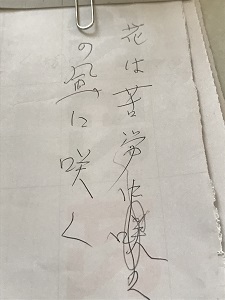 花は苦労
の風に咲く